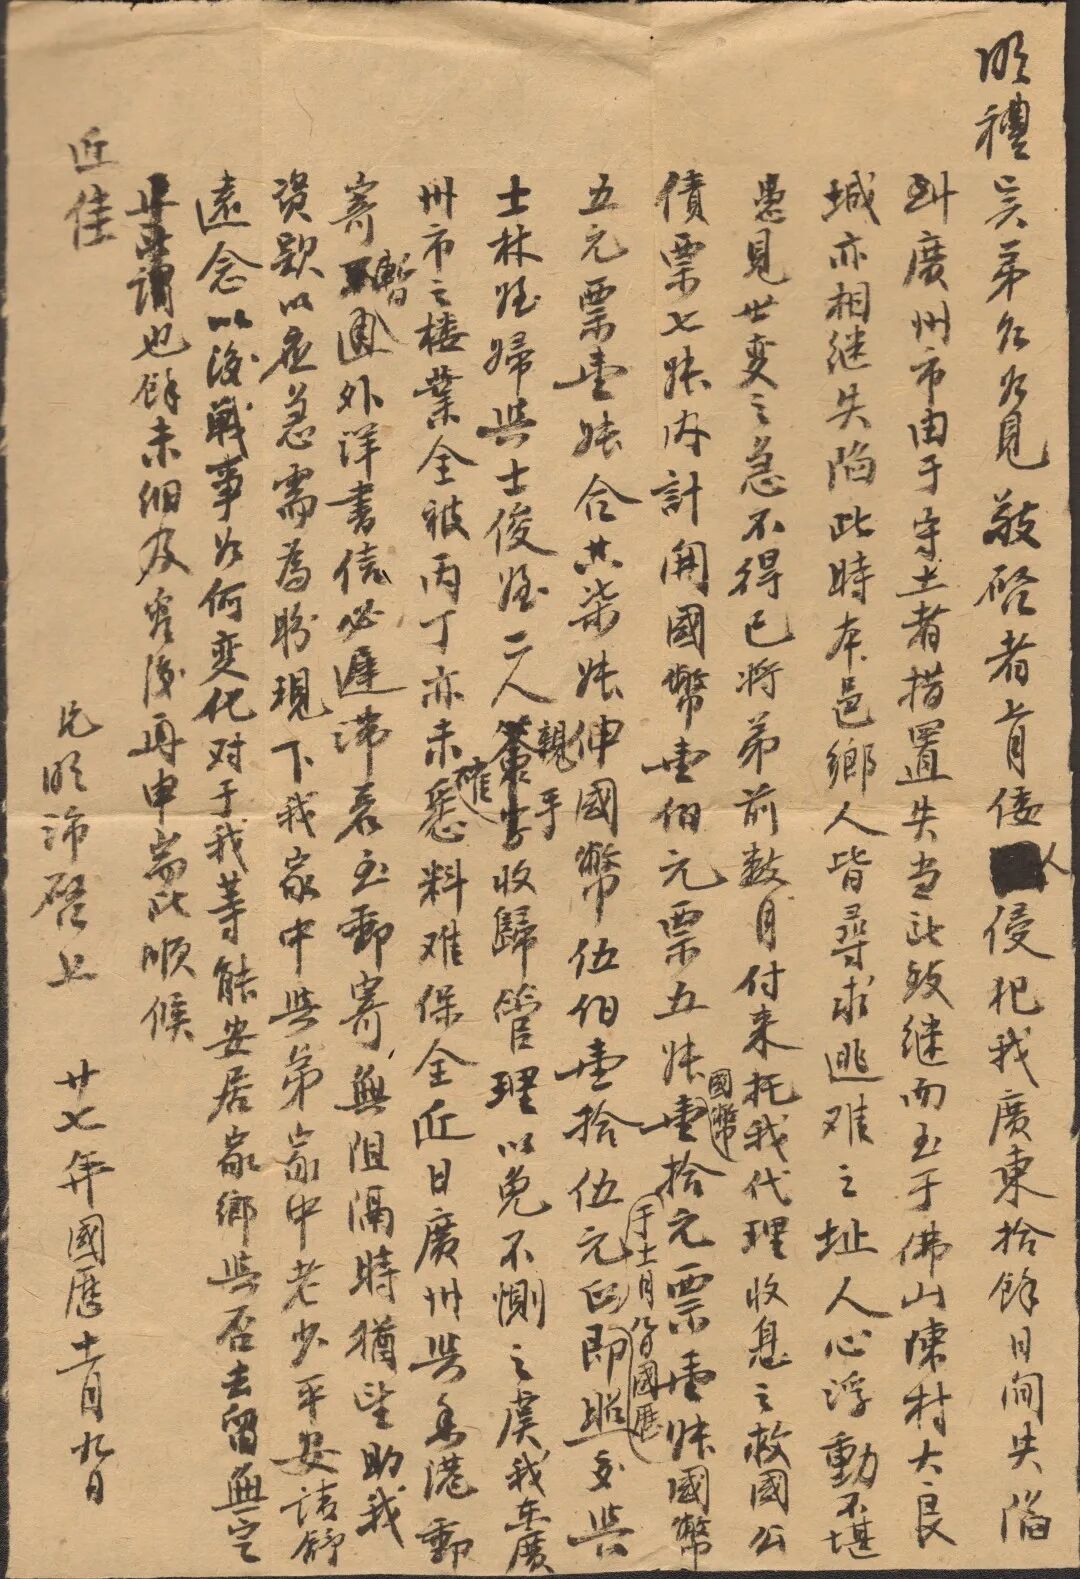 明禮吴弟如见 敬啓者上月倭人侵犯我廣東拾餘日间失陷
廣州市由于守土者措置失当所致继而至于佛山陳村大良
城亦相继失陷此時本邑鄉人皆尋求逃难之址人心浮動不堪
愚見世变之急不得已将弟前数月付来托我代理收息之救國公
債票七张内計開國幣壹佰元票五张國幣壹拾元票壹张國幣
五元票壹张合共柒张伸國幣伍佰壹拾伍元正即于十一月八日國歷照交與
士林姪婦與士俊姪二人親手收歸管理以免不惻之虞我在廣
州市之楼業全被丙丁亦未確悉料难保全近日廣州與香港郵
寄暫圖外洋書信必遲滞若至郵寄無阻隔時猶望助我
资款以应急需為盼現下我家中與弟家中老少平安请舒
遠念以後戰事如何变化对于我等能安居家鄉與否去留無定
謂也餘未细及容後再申耑此顺候
近佳
兄明沛啓上 廿七年國歷十一月九日